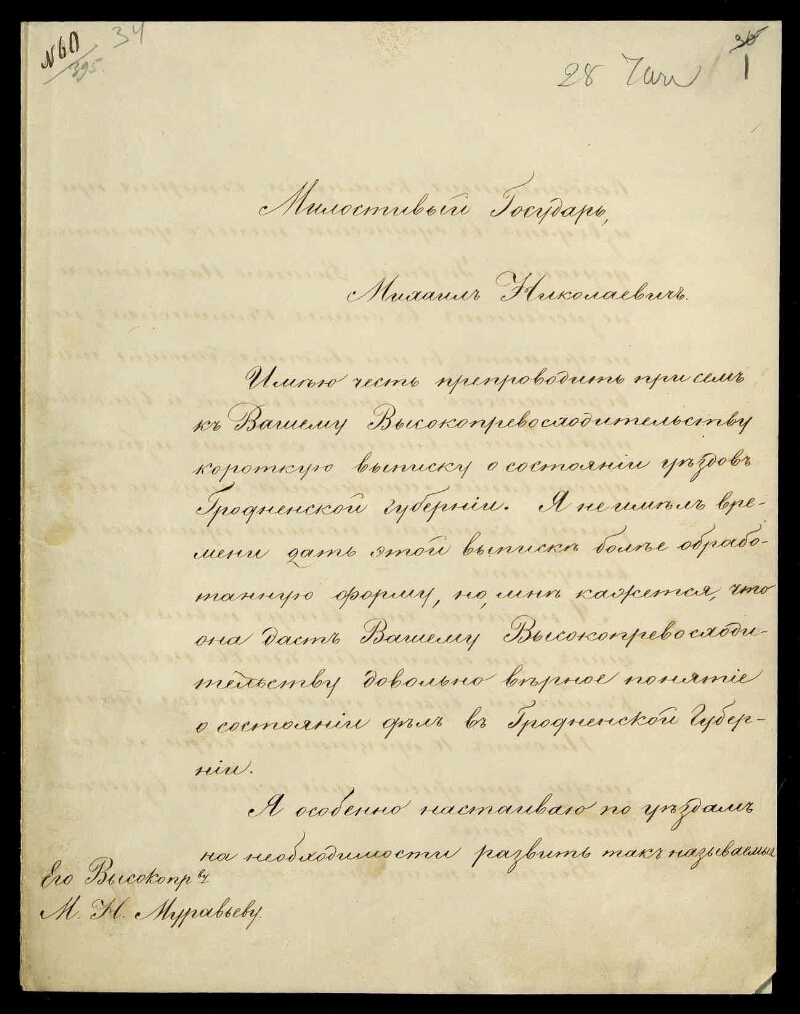 № 60
395.
34
28 Чичи
35
1
Милостивый Государь,
Михаилъ Николаевичъ.
Имѣю честь препроводить при семъ
къ Вашему Высокопревосходительству
короткую выписку о состояніи уѣздовъ
Гродненской губерніи. Я не имѣлъ вре-
мени дать этой выпискѣ болѣе обрабо-
танную форму, но, мнѣ кажется, что
она дастъ Вашему Высокопревосходи-
тельству довольно вѣрное понятіе
о состояніи дѣлъ въ Гродненской Губер-
ніи.
Я особенно настаиваю по уѣздамъ
на необходимости развить такъ называемыя
Его Высокопр ву
М. Н. Муравьеву.